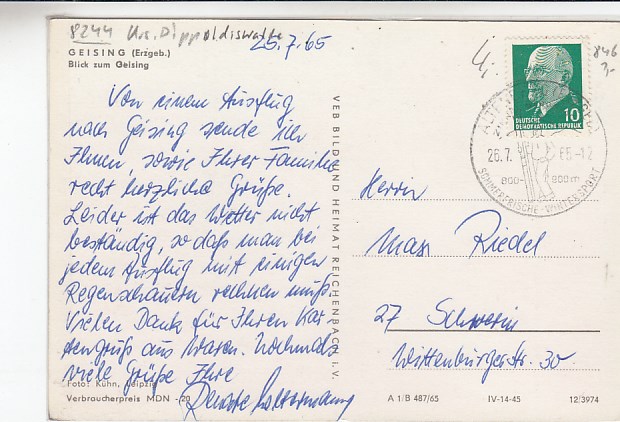 8244 Krs. Dippoldiswalde
25.7.65
GEISING (Erzgeb.)
Blick zum Geising
Von einem Ausflug
nach Geising sende ich
Ihnen, sowie Ihrer Familie
recht herzliche Grüße.
Leider ist das Wetter nicht
beständig, so daß man bei
jedem Ausflug mit einigen
Regenschauern rechnen muß.
Vielen Dank für Ihren Kar
tengruß aus Waren. Nochmals
viele Grüße Ihre
Foto: Kühn, Leipzig
Verbraucherpreis MDN -,20
VEB BILD UND HEIMAT REICHENBACH I. V.
846
DEUTSCHE
DEMOKRATISCHE REPUBLIK
10
26.7. 65-12
800- 900m
SOMMERFRISCHE WINTERSPORT
Herrn
Max Riedel
27 Schwerin
Wittenburger Str. 30
A 1/B 487/65 IV-14-45 12/3974